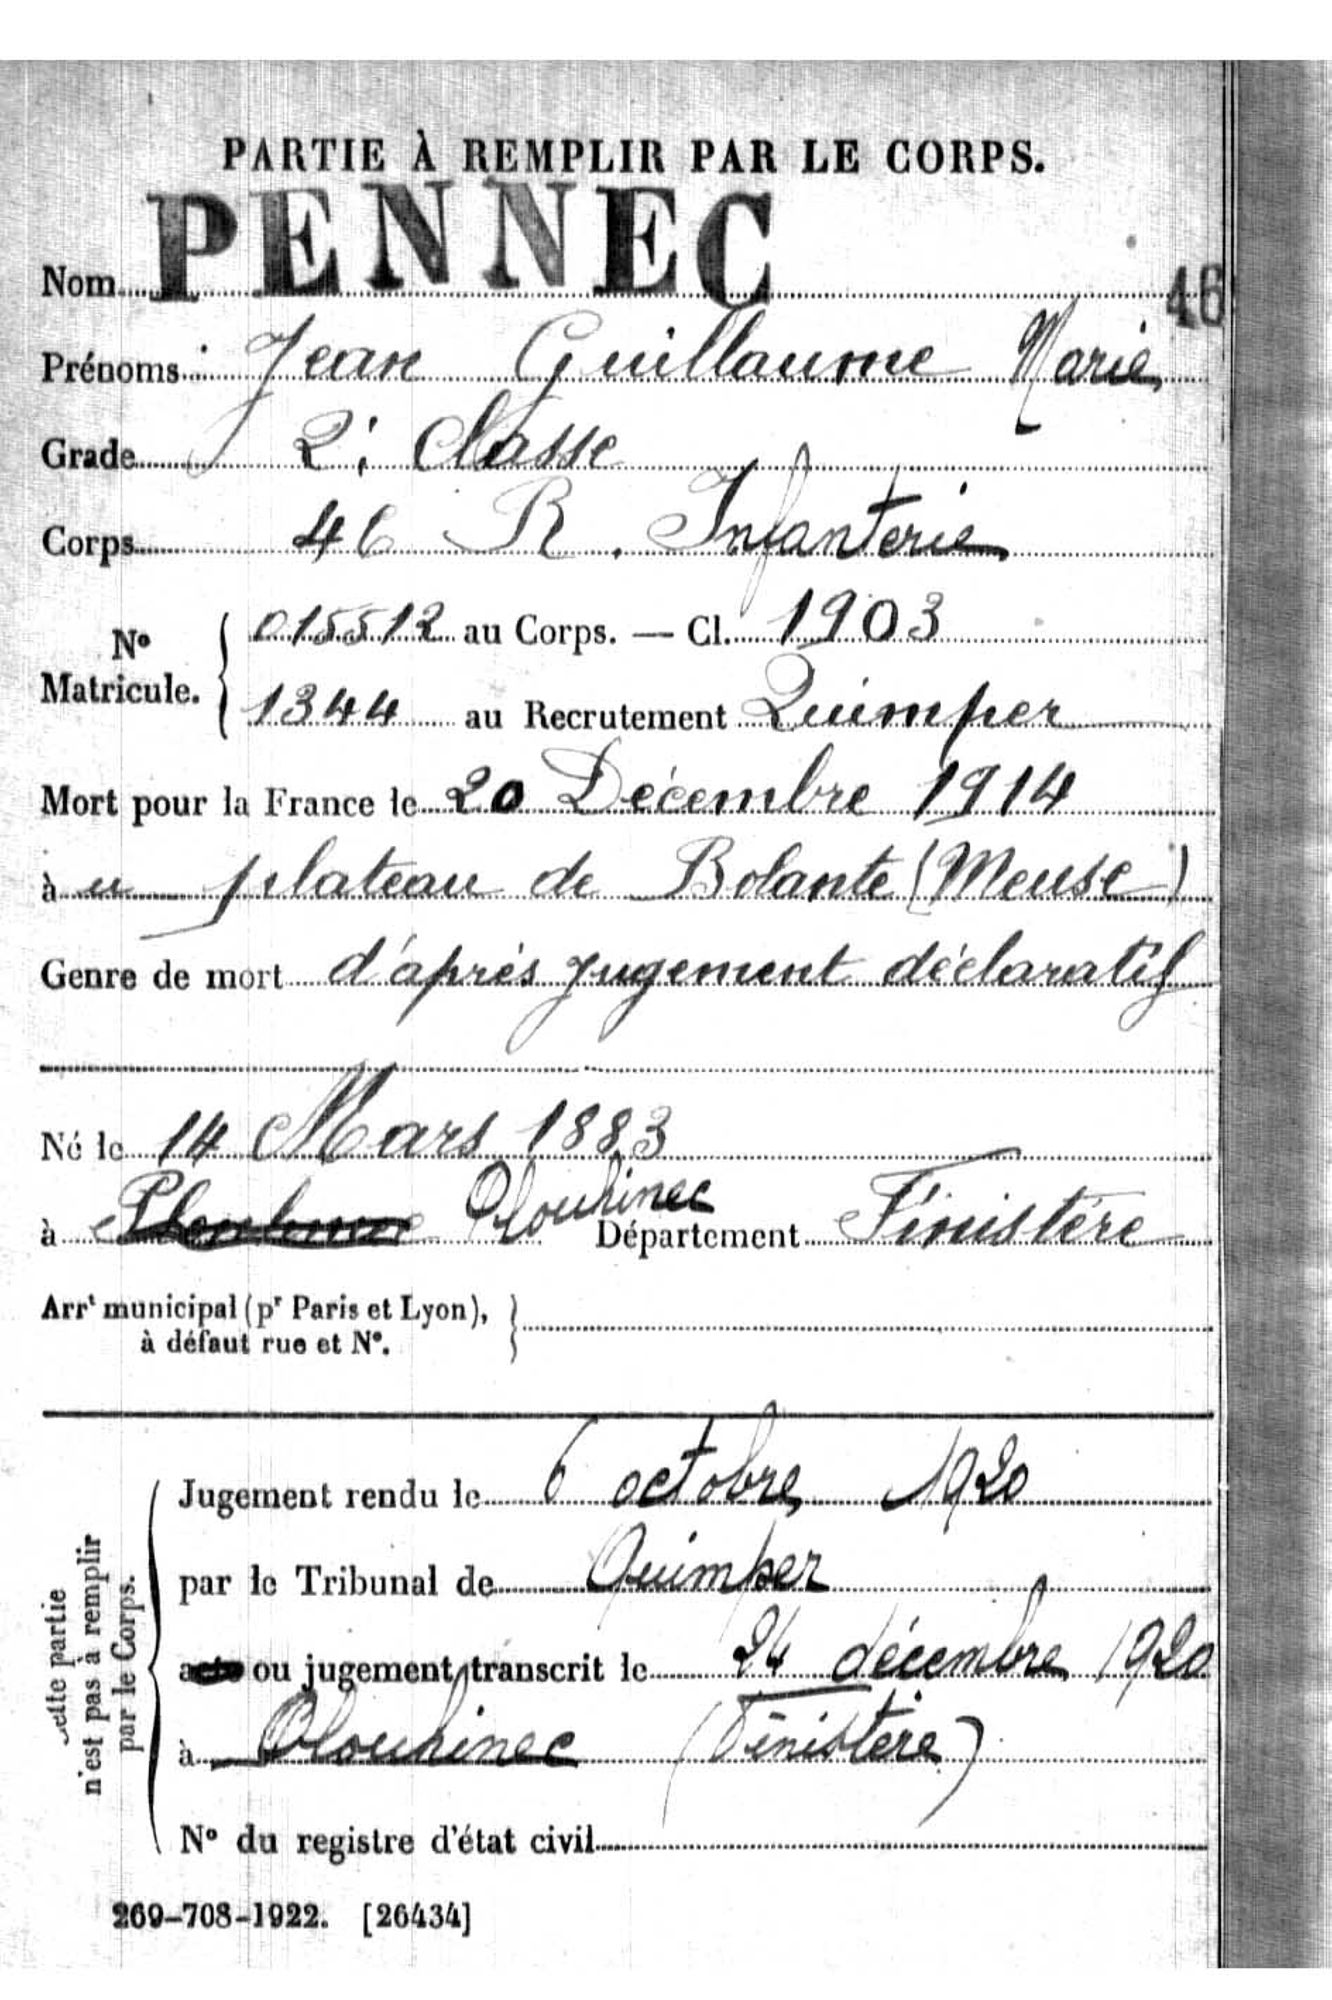 PARTIE À REMPLIR PAR LE CORPS.
Nom PENNEC
46
Prénoms Jean Guillaume Marie
Grade 2e Classe
Corps 46 R. Infanterie
No Matricule. { 015512 au Corps. — Cl. 1903
1344 au Recrutement Quimper
Mort pour la France le 20 Décembre 1914
à u plateau de Bolante (Meuse)
Genre de mort d'après jugement déclaratif
Né le 14 Mars 1883
à Plouhinec Département Finistère
Arrt municipal (pr Paris et Lyon), }
à défaut rue et No.
Jugement rendu le 6 octobre 1920
par le Tribunal de Quimper
acte ou jugement transcrit le 24 décembre 1920
à Plouhinec (Finistère)
No du registre d'état civil
Cette partie
n'est pas à remplir
par le Corps.
269-708-1922. [26434]